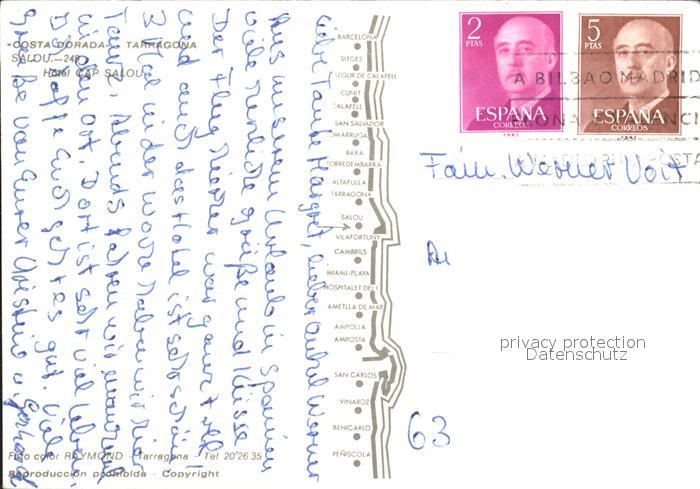 -COSTA DORADA- TARRAGONA
SALOU.—249
Hotel CAP SALOU
Liebe Tante Margret, lieber Onkel Werner
Aus unserem Urlaub in Spanien
viele herzliche Grüße und Küsse
Der Flug hierher war ganz toll
und auch das Hotel ist sehr schön!
2 Mal in der Woche haben wir hier
Tanz. Abends fahren wir manchmal
in den Ort. Dort ist sehr viel Leben.
Hoffe Euch geht es gut. Viele
Grüße von Eurer Christina u. Gerhard
Foto color RAYMOND - Tarragona - Tel 20 26 35
Reproducción prohibida - Copyright
BARCELONA
SITGES
SEGUR DE CALAFELL
CUNIT
CALAFELL
SAN SALVADOR
COMARRUGA
BARA
TORREDEMBARRA
ALTAFULLA
TARRAGONA
SALOU
VILAFORTUNY
CAMBRILS
MIAMI-PLAYA
HOSPITALET DEL I.
AMETLLA DE MAR
AMPOLLA
AMPOSTA
SAN CARLOS
VINAROZ
BENICARLO
PEÑISCOLA
2
PTAS
ESPAÑA
CORREOS
5
PTAS
ESPAÑA
CORREOS
A BILBAO MADRID
Fam. Werner Voit
63
privacy protection
Datenschutz